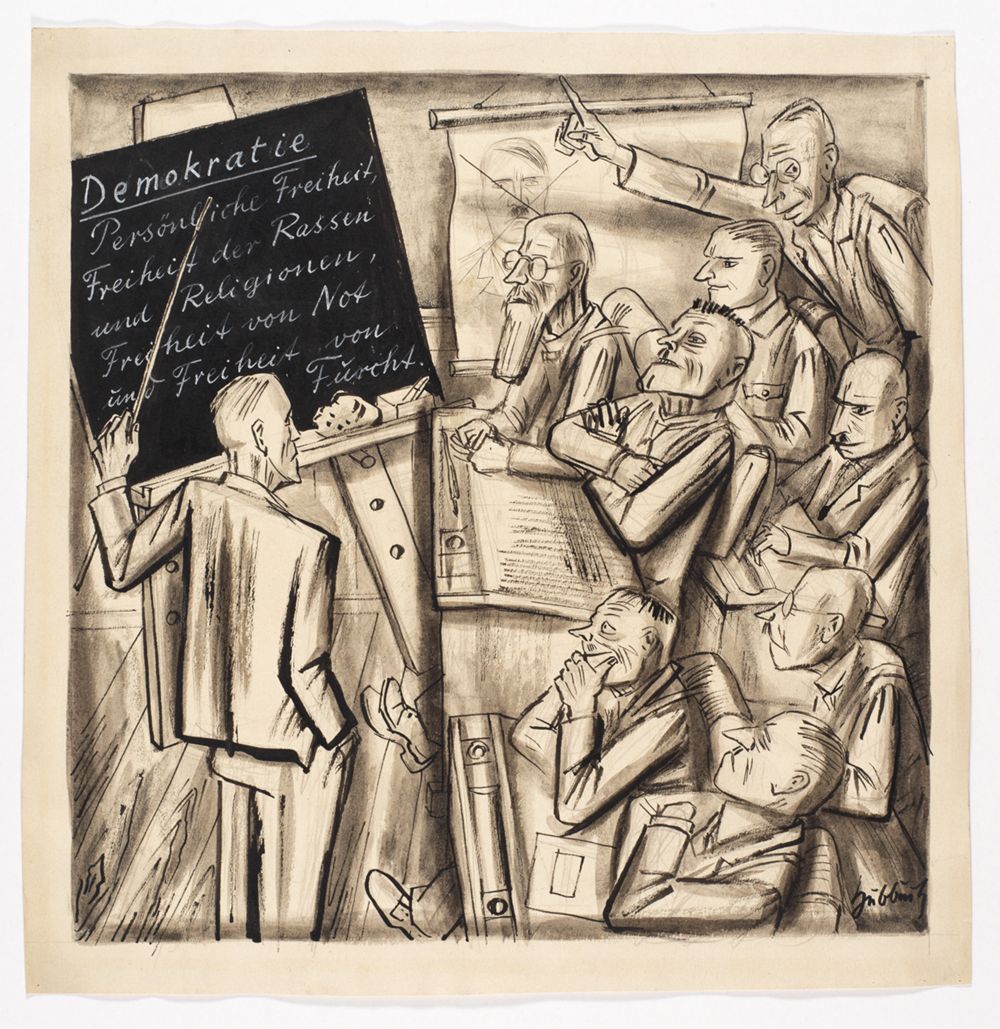 Demokratie
Persönliche Freiheit,
Freiheit der Rassen
und Religionen,
Freiheit von Not
und Freiheit von
Furcht.
Hubbuch